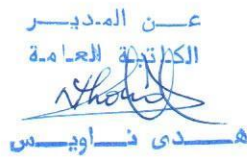 عــن المـديــر
الكاتبة العـامـة
هــدى نــاويــس